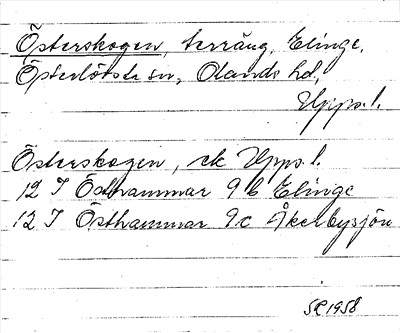 Österskogen, terräng, Elinge,
Österlövsta sn, Olands hd,
Upps. l.
Österskogen, ek Upps. l.
12 I Östhammar 9 b Elinge
12 I Östhammar 9c Åkerbysjön
SR 1958